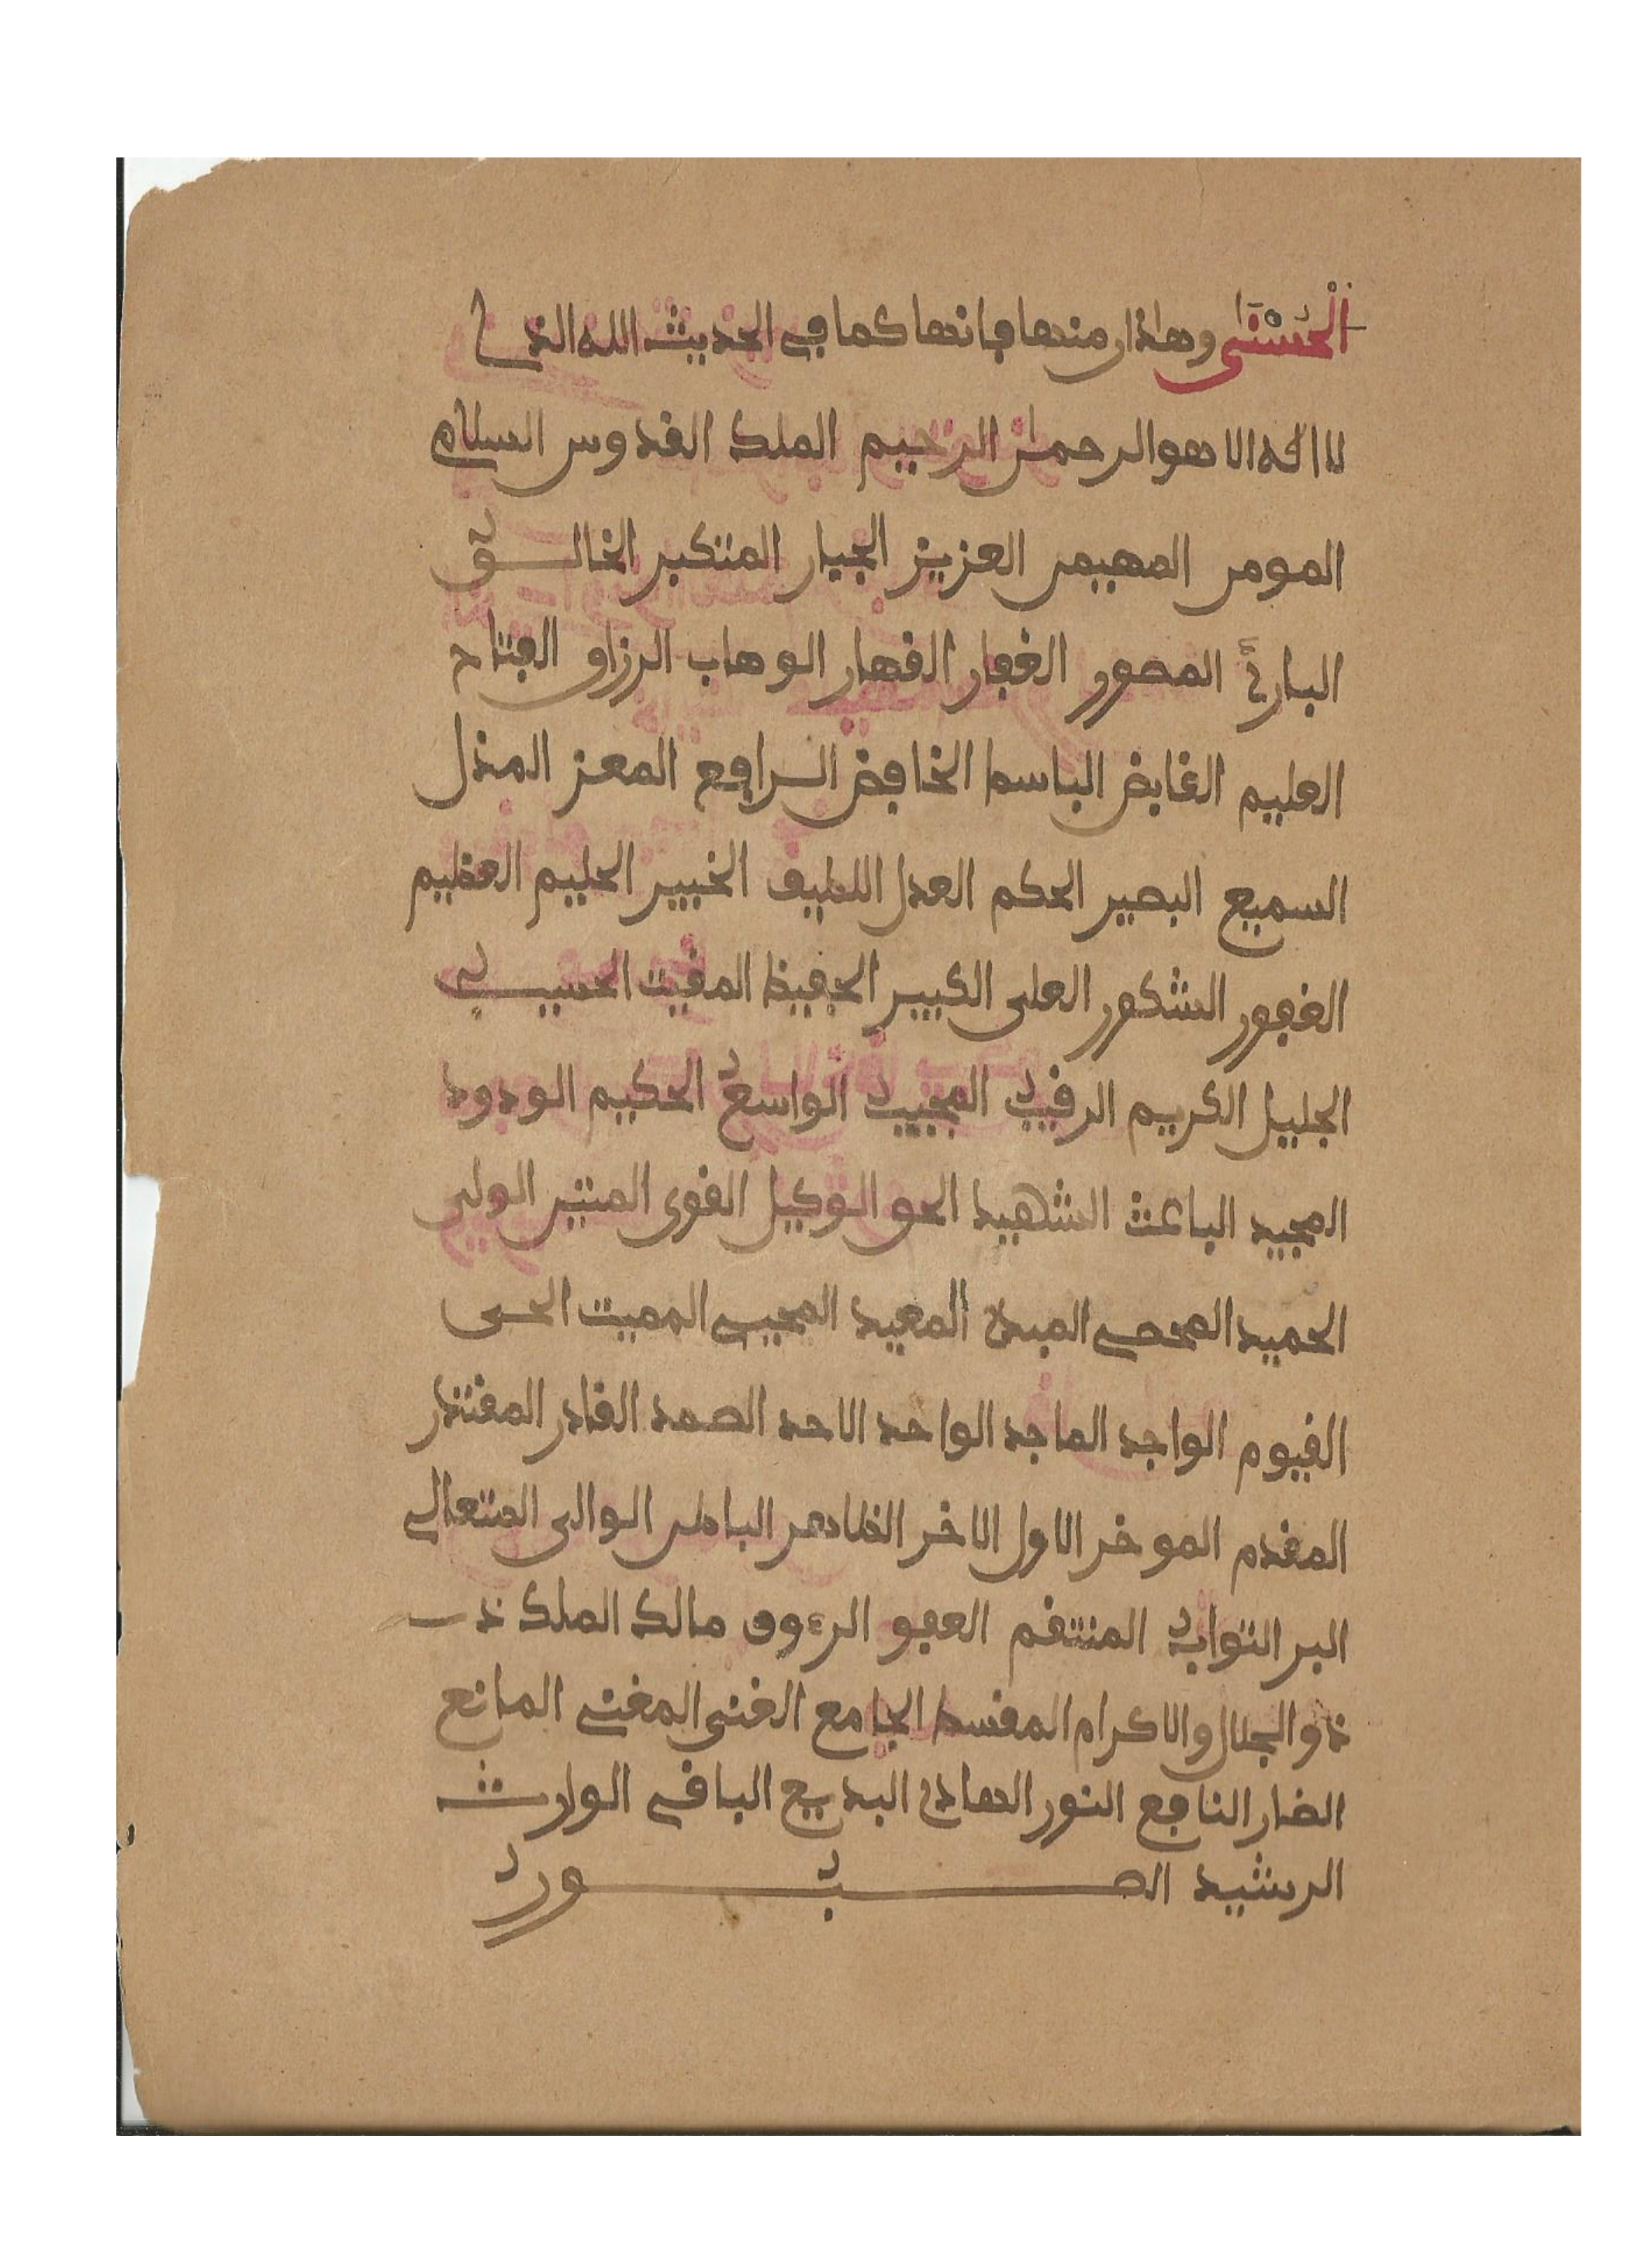 الْحُسْنَى وهاذان منها فإنها كما في الحديث الله الذي
لا اله الا هو الرحمان الرحيم الملك القدوس السلام
المومن المهيمن العزيز الجبار المتكبر الخالق
البارئ المصور الغفار القهار الوهاب الرزاق الفتاح
العليم القابض الباسط الخافض الرافع المعز المذل
السميع البصير الحكم العدل اللطيف الخبير الحليم العظيم
الغفور الشكور العلى الكبير الحفيظ المقيت الحسيب
الجليل الكريم الرقيب المجيب الواسع الحكيم الودود
المجيد الباعث الشهيد الحق الوكيل القوى المتين الولى
الحميد المحصي المبدئ المعيد المحيي المميت الحى
القيوم الواجد الماجد الواحد الاحد الصمد القادر المقتدر
المقدم الموخر الاول الاخر الظاهر الباطن الوالى المتعالي
البر التواب المنتقم العفو الرءوف مالك الملك ذ
ذو الجلال والاكرام المقسط الجامع الغنى المغني المانع
الضار النافع النور الهادي البديع الباقي الوارث
الرشيد الصبور